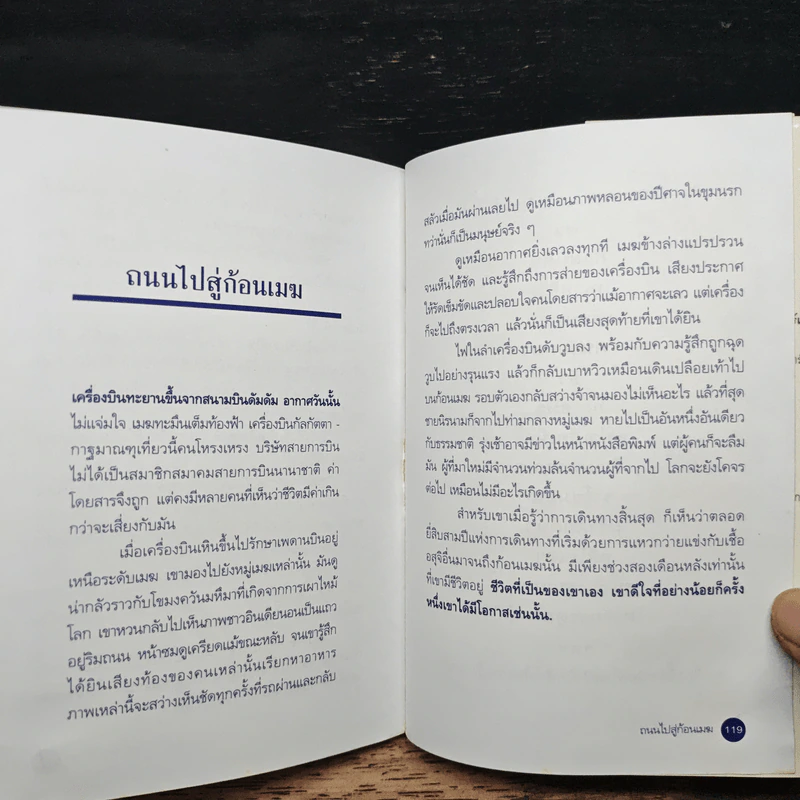 ถนนไปสู่ก้อนเมฆ
เครื่องบินทะยานขึ้นจากสนามบินดัมดัม อากาศวันนั้น
ไม่แจ่มใจ เมฆทะมึนเต็มท้องฟ้า เครื่องบินกัลกัตตา -
กาฐมาณฑุเที่ยวนี้คนโหรงเหรง บริษัทสายการบิน
ไม่ได้เป็นสมาชิกสมาคมสายการบินนานาชาติ ค่า
โดยสารจึงถูก แต่คงมีหลายคนที่เห็นว่าชีวิตมีค่าเกิน
กว่าจะเสี่ยงกับมัน
เมื่อเครื่องบินเหินขึ้นไปรักษาเพดานบินอยู่
เหนือระดับเมฆ เขามองไปยังหมู่เมฆเหล่านั้น มันดู
น่ากลัวราวกับโขมงควันมหึมาที่เกิดจากการเผาไหม้
โลก เขาหวนกลับไปเห็นภาพชาวอินเดียนอนเป็นแถว
อยู่ริมถนน หน้าซมดูเครียดแม้ขณะหลับ จนเขารู้สึก
ได้ยินเสียงท้องของคนเหล่านั้นเรียกหาอาหาร
ภาพเหล่านี้จะสว่างเห็นชัดทุกครั้งที่รถผ่านและกลับ
สลัวเมื่อมันผ่านเลยไป ดูเหมือนภาพหลอนของปีศาจในขุมนรก
กว่านั่นก็เป็นมนุษย์จริง ๆ
ดูเหมือนอากาศยิ่งเลวลงทุกที เมฆข้างล่างแปรปรวน
จนเห็นได้ชัด และรู้สึกถึงการส่ายของเครื่องบิน เสียงประกาศ
ให้รัดเข็มขัดและปลอบใจคนโดยสารว่าแม้อากาศจะเลว แต่เครื่อง
ก็จะไปถึงตรงเวลา แล้วนั่นก็เป็นเสียงสุดท้ายที่เขาได้ยิน
ไฟในลำเครื่องบินดับวูบลง พร้อมกับความรู้สึกถูกฉุด
วูบไปอย่างรุนแรง แล้วก็กลับเบาหวิวเหมือนเดินเปลือยเท้าไป
บนก้อนเมฆ รอบตัวเองกลับสว่างจ้าจนมองไม่เห็นอะไร แล้วที่สุด
ชายนิรนามก็จากไปท่ามกลางหมู่เมฆ หายไปเป็นอันหนึ่งอันเดียว
กับธรรมชาติ รุ่งเช้าอาจมีข่าวในหน้าหนังสือพิมพ์ แต่ผู้คนก็จะลืม
มัน ผู้ที่มาใหม่มีจำนวนท่วมล้นจำนวนผู้ที่จากไป โลกจะยังโคจร
ต่อไป เหมือนไม่มีอะไรเกิดขึ้น
สำหรับเขาเมื่อรู้ว่าการเดินทางสิ้นสุด ก็เห็นว่าตลอด
ยี่สิบสามปีแห่งการเดินทางที่เริ่มด้วยการแหวกว่ายแข่งกับเชื้อ
อสุจิอื่นมาจนถึงก้อนเมฆนั้น มีเพียงช่วงสองเดือนหลังเท่านั้น
ที่เขามีชีวิตอยู่ ชีวิตที่เป็นของเขาเอง เขาดีใจที่อย่างน้อยก็ครั้ง
หนึ่งเขาได้มีโอกาสเช่นนั้น.
ถนนไปสู่ก้อนเมฆ 119